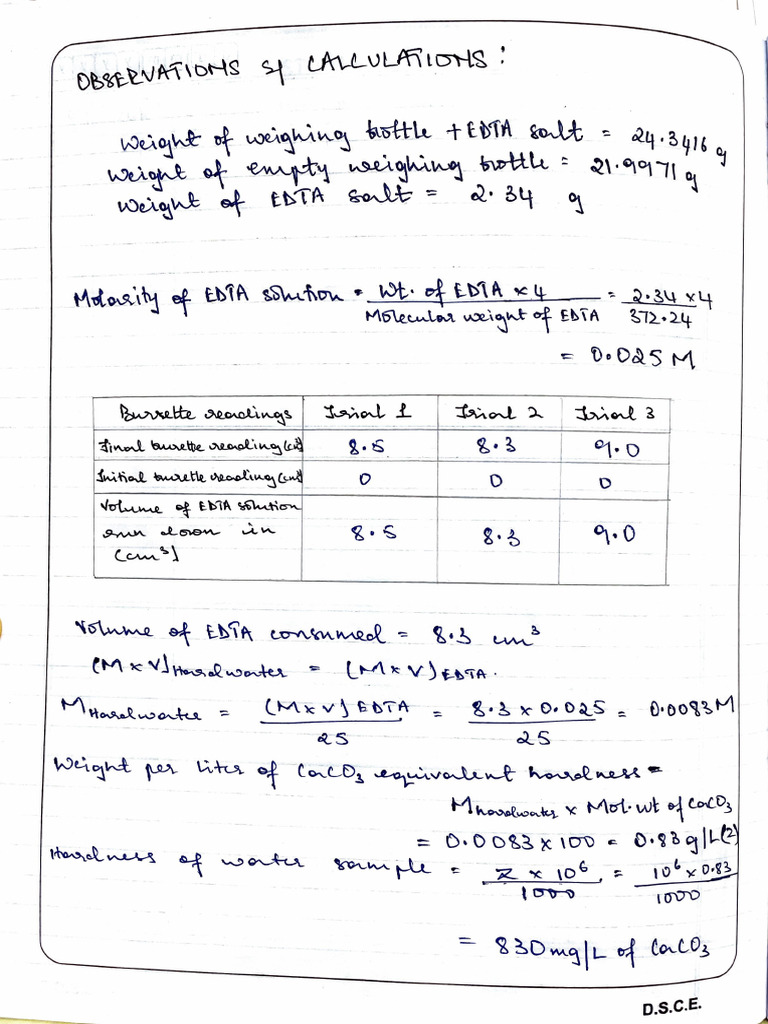 OBSERVATIONS & CALCULATIONS:
Weight of weighing bottle + EDTA salt = 24.3416 g
Weight of empty weighing bottle = 21.9971 g
Weight of EDTA salt = 2.34 g
Molarity of EDTA solution = Wt. of EDTA × 4 / Molecular weight of EDTA = 2.34 × 4 / 372.24
= 0.025 M
Burrette readings Trial 1 Trial 2 Trial 3
Final burette reading (cm³) 8.5 8.3 9.0
Initial burette reading (cm³) 0 0 0
Volume of EDTA solution
run down in
(cm³) 8.5 8.3 9.0
Volume of EDTA consumed = 8.3 cm³
(M × V) Hardwater = (M × V) EDTA.
M Hardwater = (M × V) EDTA / 25 = 8.3 × 0.025 / 25 = 0.0083 M
Weight per liter of CaCO₃ equivalent hardness =
M hardwater × Mol. wt of CaCO₃
= 0.0083 × 100 = 0.83 g/L (Z)
Hardness of water sample = Z × 10⁶ / 1000 = 10⁶ × 0.83 / 1000
= 830 mg/L of CaCO₃
D.S.C.E.